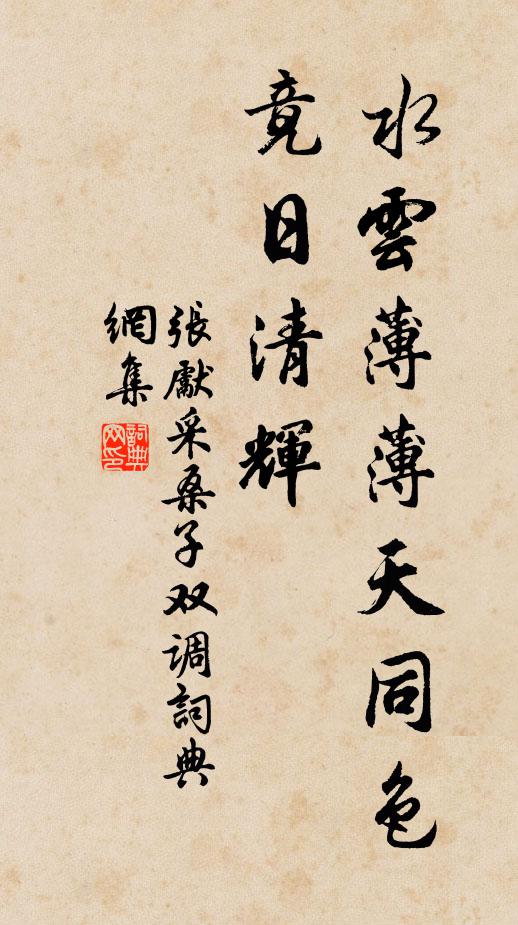 水雲薄薄天同色
竟日清輝
張獻采桑子双调詞典
網集
詞典网印